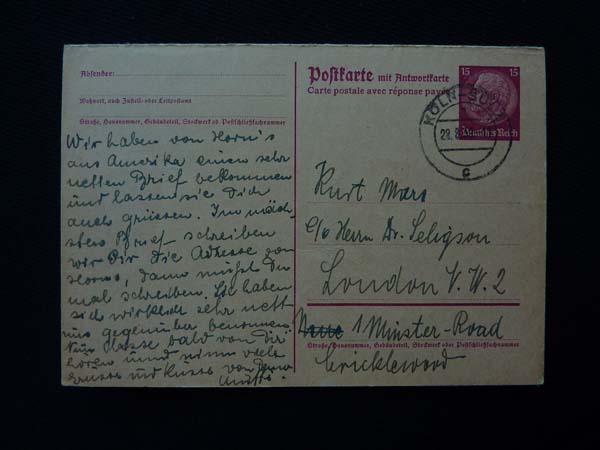 Absender:
Wohnort, auch Zustell- oder Leitpostamt
Straße, Hausnummer, Gebäudeteil, Stockwerk od. Postschließfachnummer
Wir haben von Horn's
aus Amerika einen sehr
netten Brief bekommen
und lassen sie Dich
auch grüssen. Im näch-
sten Brief schreiben
wir Dir die Adresse von
Horns, dann musst Du
mal schreiben. Sie haben
sich wirklich sehr nett
uns gegenüber benommen.
Nun lasse bald von Dir
hören und nimm viele
Grüsse und Küsse von
Postkarte mit Antwortkarte
Carte postale avec réponse payée
15 15
Deutsches Reich
KÖLN-SÜLZ
28.8.
c
Kurt Marx
c/o Herrn Dr. Seligson
London N.W.2
1 Minster-Road
Straße, Hausnummer, Gebäudeteil, Stockwerk oder Postschließfachnummer
Cricklewood